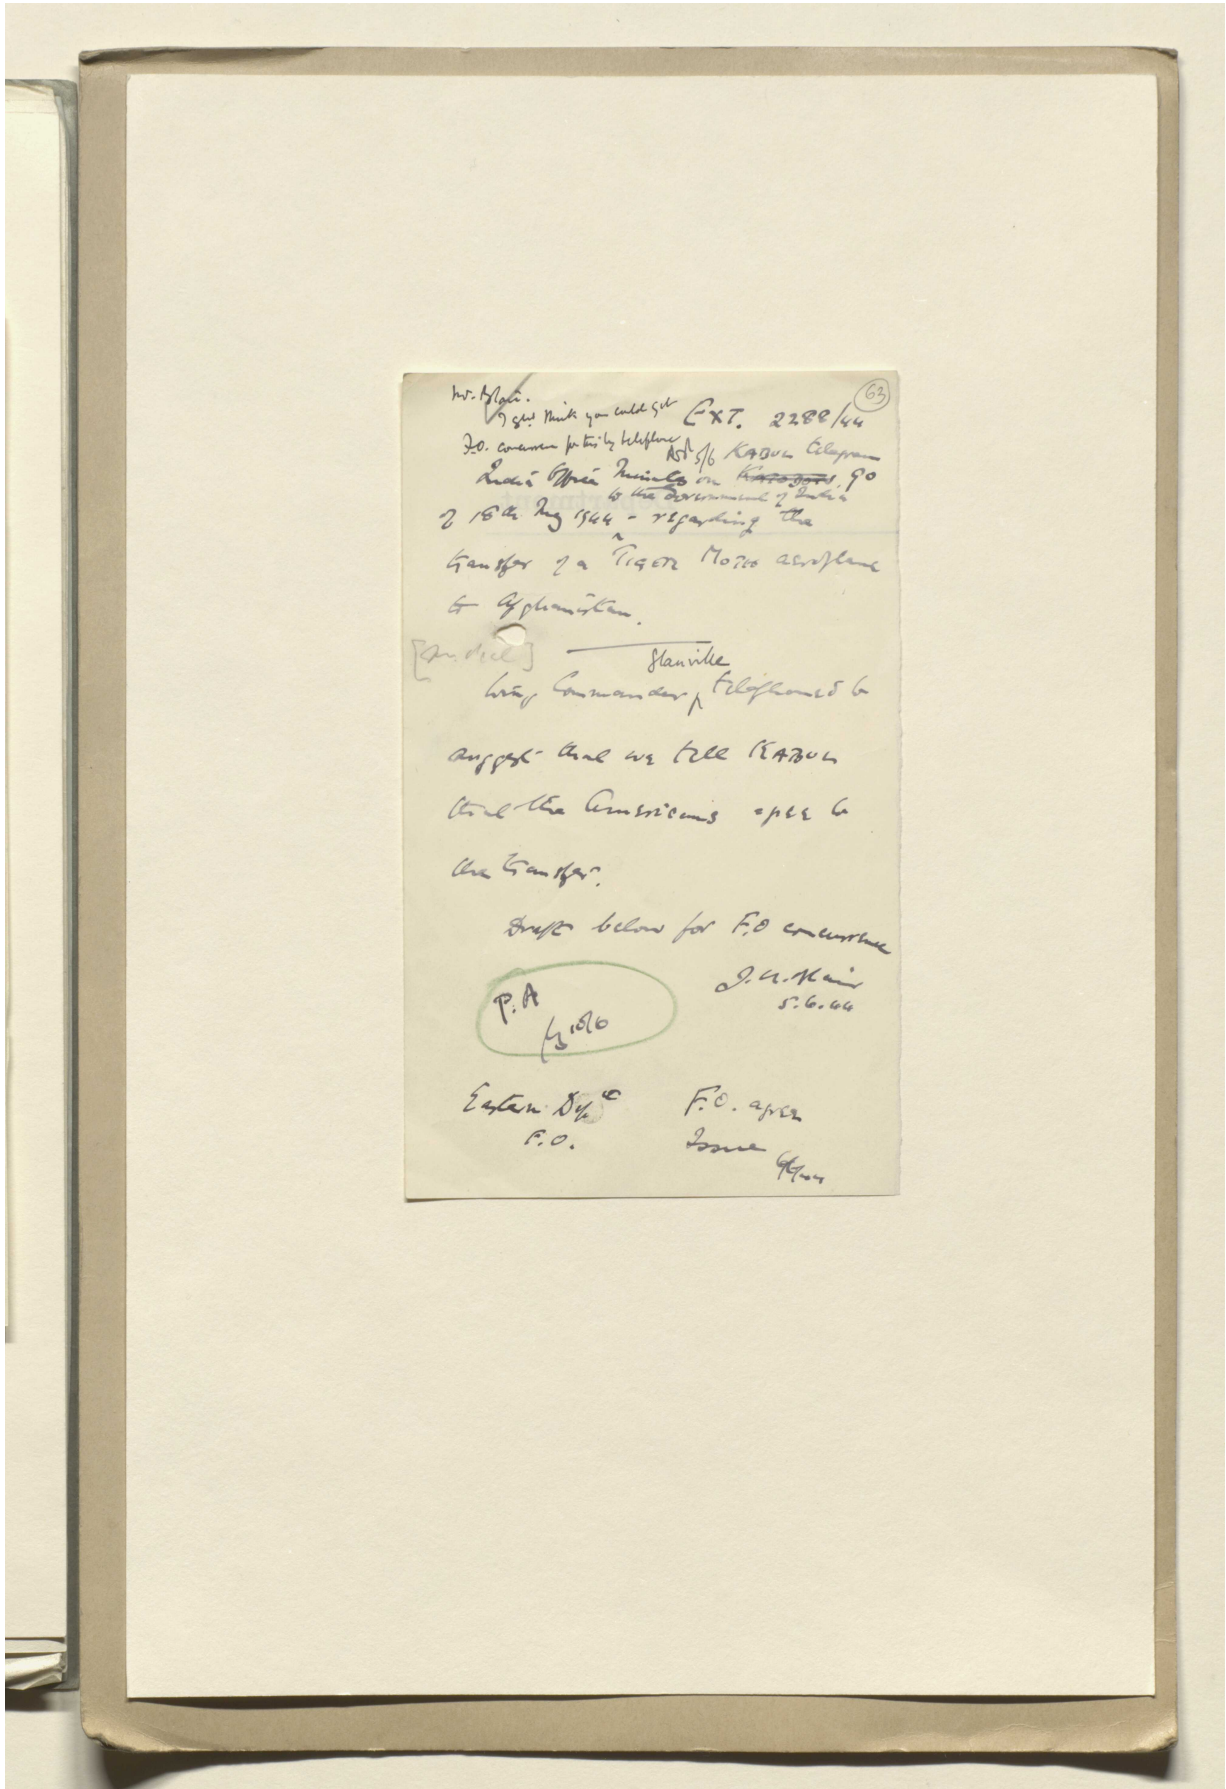 63
Mr. Blair.
I shd. think you could get
F.O. concurrence for this by telephone
5/6
EXT. 2288/44
India Office Minute on Kabul telegram 90
to the Government of India
of 18th May 1944 - regarding the
transfer of a Tiger Moth aeroplane
to Afghanistan.
Wing Commander Glanville telephoned to
suggest that we tell KABUL
that the Americans agree to
the transfer.
Draft below for F.O concurrence
J.H. Blair
5.6.44
P.A
Eastern Dept
F.O.
F.O. agree
Issue
6/6/44